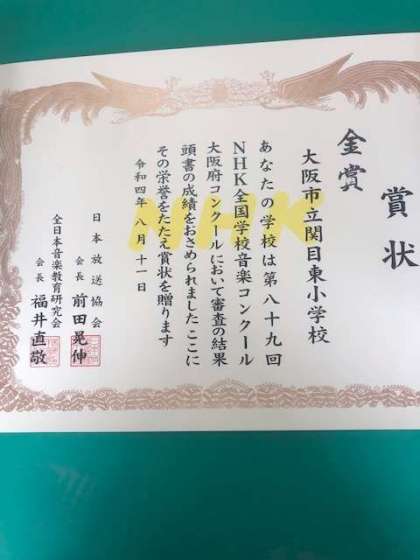 賞状
金賞
大阪市立関目東小学校
あなたの学校は第八十九回
NHK全国学校音楽コンクール
大阪府コンクールにおいて審査の結果
頭書の成績をおさめられましたここに
その栄誉をたたえ賞状を贈ります
令和四年八月十一日
日本放送協会
会長 前田晃伸
全日本音楽教育研究会
会長 福井直敬
NHK